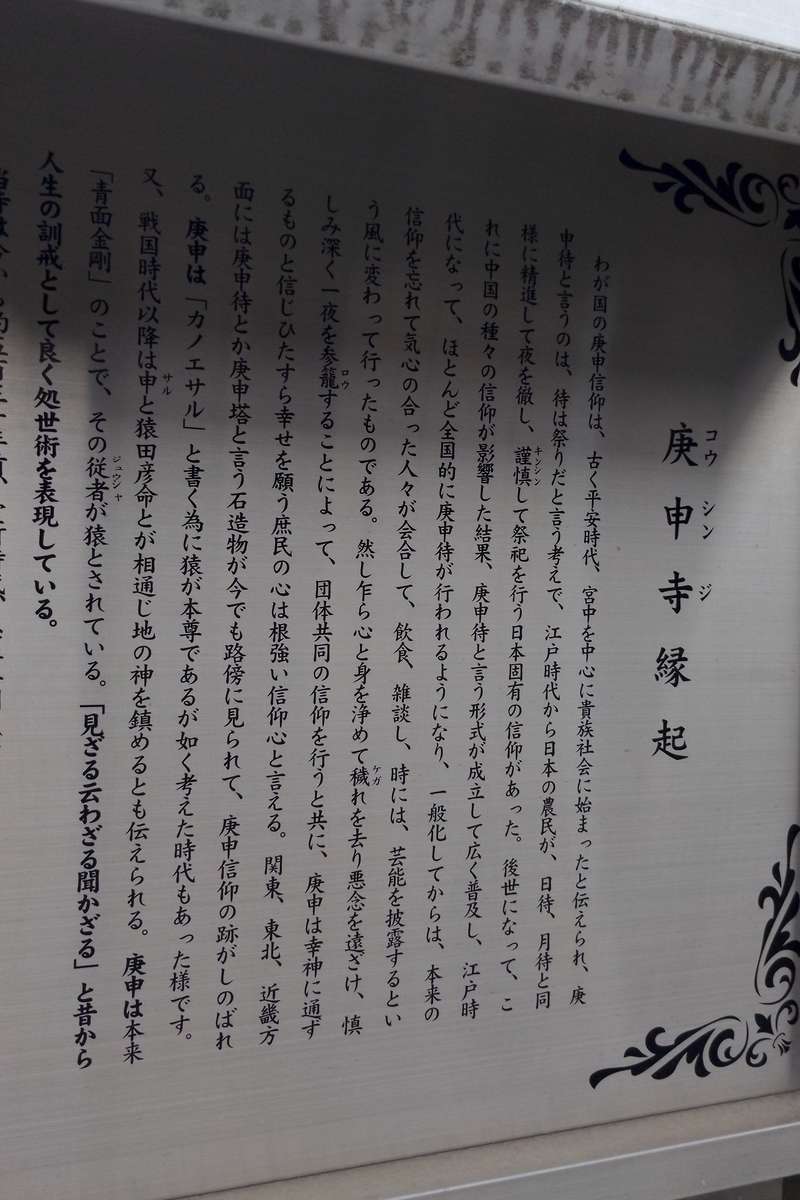 庚申寺縁起
コウシンジ
わが国の庚申信仰は、古く平安時代、宮中を中心に貴族社会に始まったと伝えられ、庚
申待と言うのは、待は祭りだと言う考えで、江戸時代から日本の農民が、日待、月待と同
様に精進して夜を徹し、謹慎して祭祀を行う日本固有の信仰があった。後世になって、こ
キンシン
れに中国の種々の信仰が影響した結果、庚申待と言う形式が成立して広く普及し、江戸時
代になって、ほとんど全国的に庚申待が行われるようになり、一般化してからは、本来の
信仰を忘れて気心の合った人々が会合して、飲食、雑談し、時には、芸能を披露するとい
う風に変わって行ったものである。然し乍ら心と身を浄めて穢れを去り悪念を遠ざけ、慎
ケガ
しみ深く一夜を参籠することによって、団体共同の信仰を行うと共に、庚申は幸神に通ず
ロウ
るものと信じひたすら幸せを願う庶民の心は根強い信仰心と言える。関東、東北、近畿方
面には庚申待とか庚申塔と言う石造物が今でも路傍に見られて、庚申信仰の跡がしのばれ
る。庚申は「カノエサル」と書く為に猿が本尊であるが如く考えた時代もあった様です。
又、戦国時代以降は申と猿田彦命とが相通じ地の神を鎮めるとも伝えられる。庚申は本来
サル
「青面金剛」のことで、その従者が猿とされている。「見ざる云わざる聞かざる」と昔から
ジュウシャ
人生の訓戒として良く処世術を表現している。